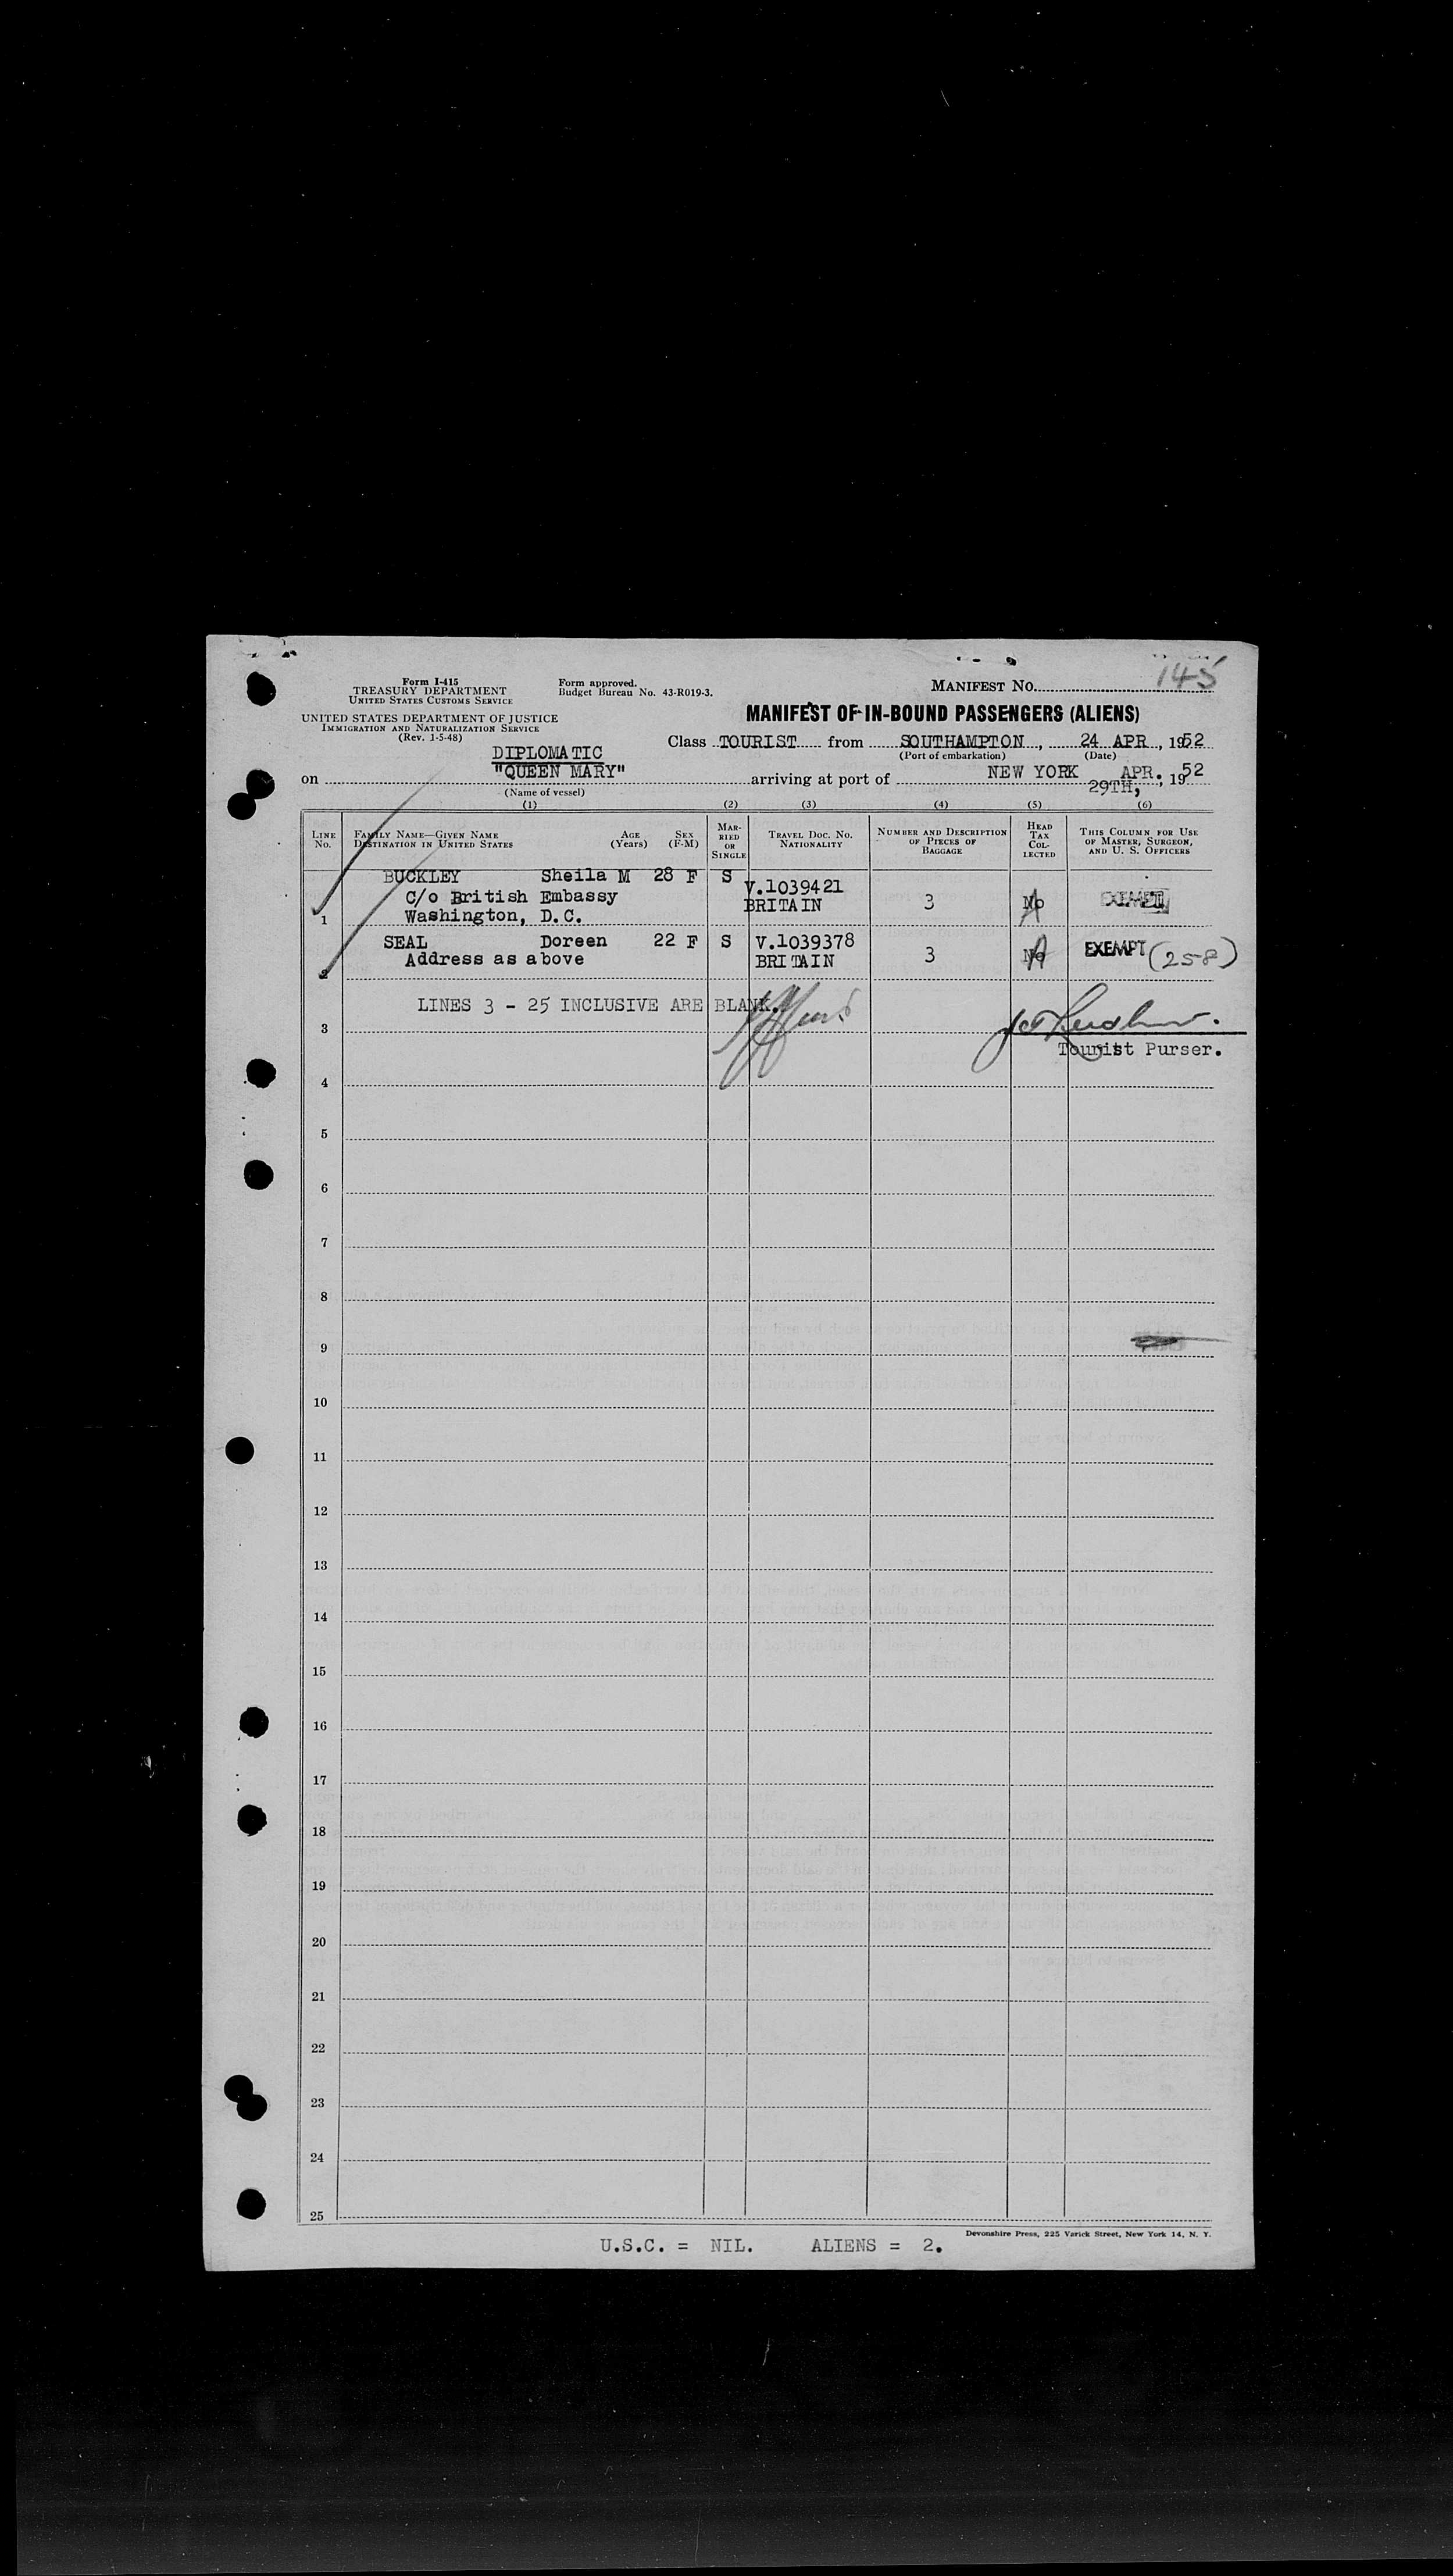 145
Form I-415
TREASURY DEPARTMENT
UNITED STATES CUSTOMS SERVICE
Form approved.
Budget Bureau No. 43-R019-3.
MANIFEST NO.
UNITED STATES DEPARTMENT OF JUSTICE
IMMIGRATION AND NATURALIZATION SERVICE
(Rev. 1-5-48)
MANIFEST OF IN-BOUND PASSENGERS (ALIENS)
Class TOURIST from SOUTHAMPTON, 24 APR, 1952
(Port of embarkation) (Date)
DIPLOMATIC
on "QUEEN MARY" arriving at port of NEW YORK APR. 29TH, 1952
(Name of vessel)
(1) (2) (3) (4) (5) (6)
LINE NO. FAMILY NAME—GIVEN NAME DESTINATION IN UNITED STATES AGE (Years) SEX (F-M) MARRIED OR SINGLE TRAVEL DOC. NO. NATIONALITY NUMBER AND DESCRIPTION OF PIECES OF BAGGAGE HEAD TAX COLLECTED THIS COLUMN FOR USE OF MASTER, SURGEON, AND U. S. OFFICERS
BUCKLEY Sheila M 28 F S V.1039421
C/o British Embassy BRITAIN 3 No EXEMPT
1 Washington, D.C.
SEAL Doreen 22 F S V.1039378
Address as above BRITAIN 3 No EXEMPT (258)
2
LINES 3 - 25 INCLUSIVE ARE BLANK.
3
Tourist Purser.
4
5
6
7
8
9
10
11
12
13
14
15
16
17
18
19
20
21
22
23
24
25
Devonshire Press, 225 Varick Street, New York 14, N. Y.
U.S.C. = NIL. ALIENS = 2.